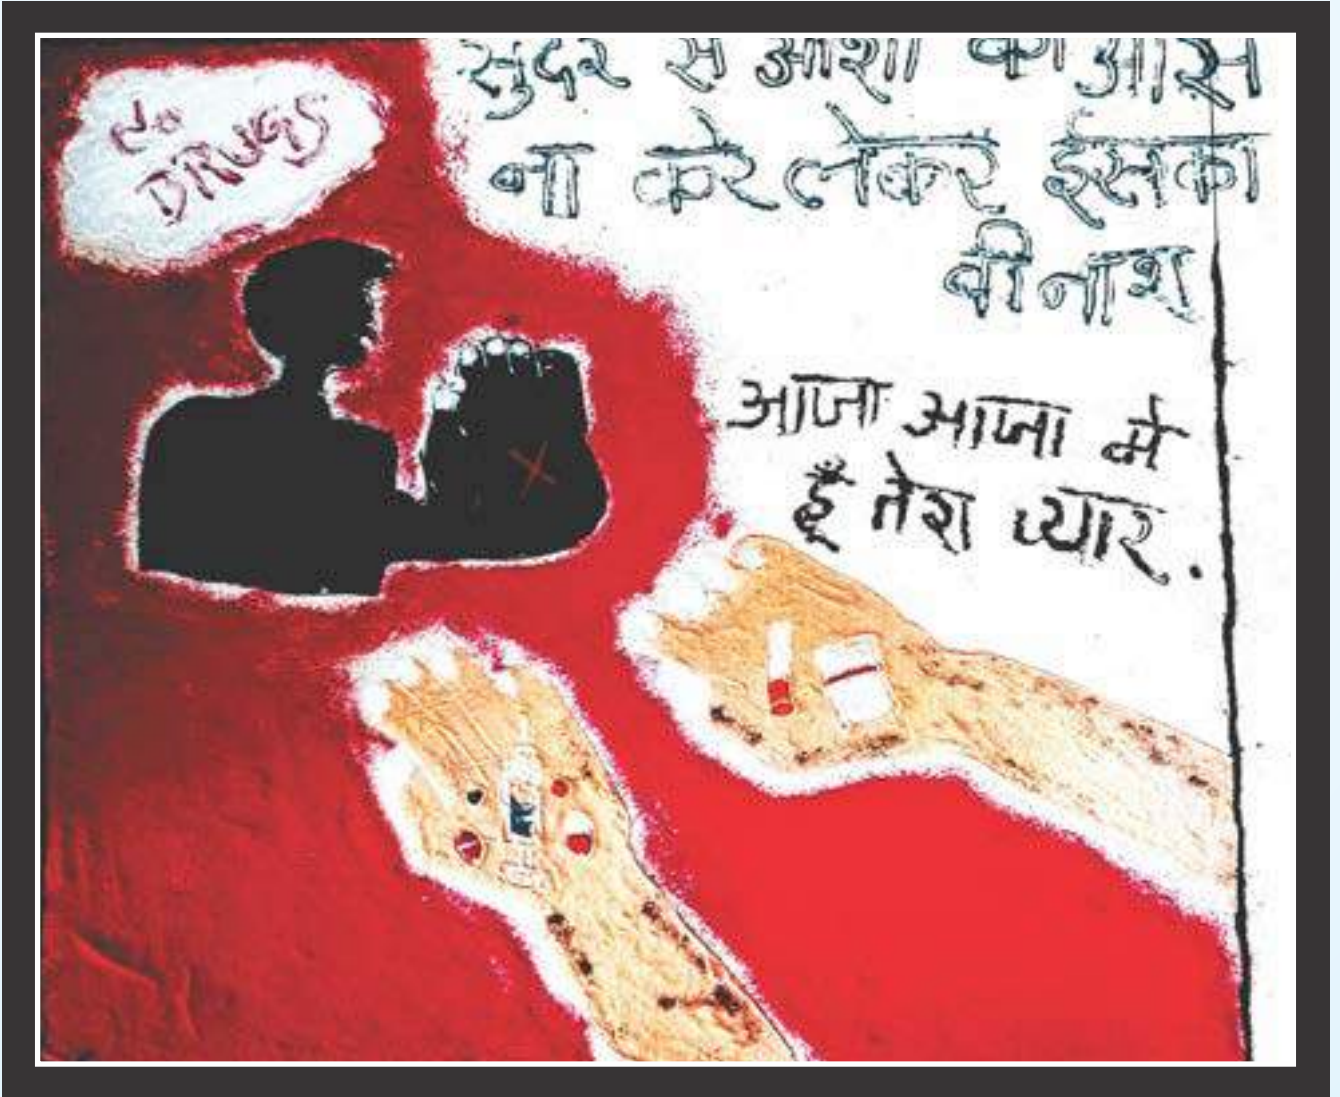 No
DRUGS
सुंदर से आशा की आस
ना करे लेकर इसका
वीनाश
आजा आजा मे
हूँ तेरा प्यार.